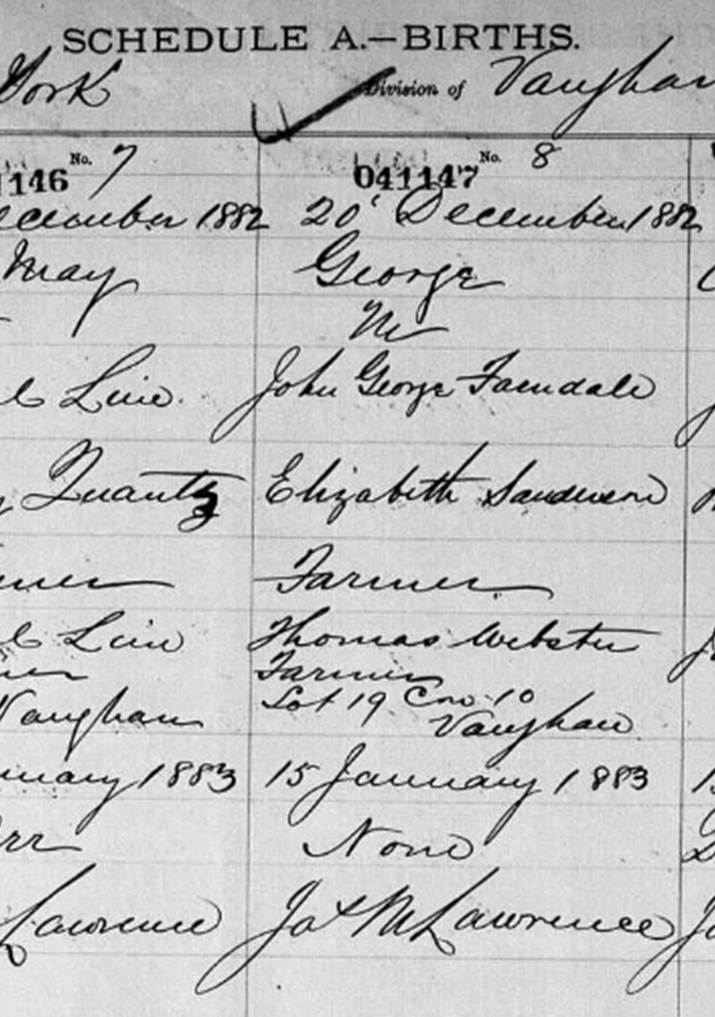 SCHEDULE A.—BIRTHS.
York Division of Vaughan
1146 No. 7 041147 No. 8
ecember 1882 20' December 1882
May George
M
l Line John George Farndale
Quantz Elizabeth Sanderson
mer Farmer
l Line Thomas Webster
mer Farmer
Lot 19 Con 10
Vaughan Vaughan
nuary 1883 15 January 1883
rr None
Lawrence Jas McLawrence